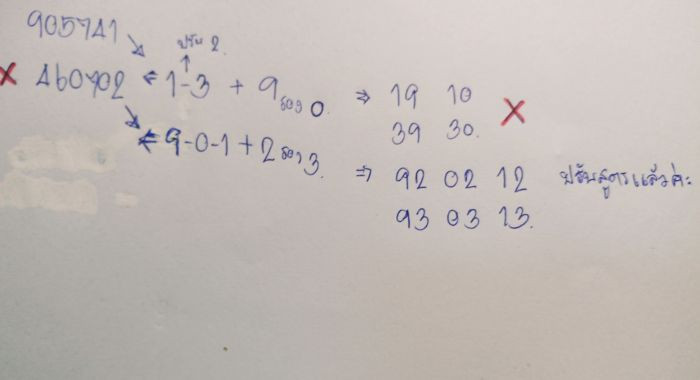 905741
ปรับ 2.
× 460702 ← 1-3 + 9 รอง 0 ⇒ 19 10 ×
39 30.
← 9-0-1 + 2 รอง 3. ⇒ 92 02 12 ปรับสูตรแล้วค่ะ
93 03 13.